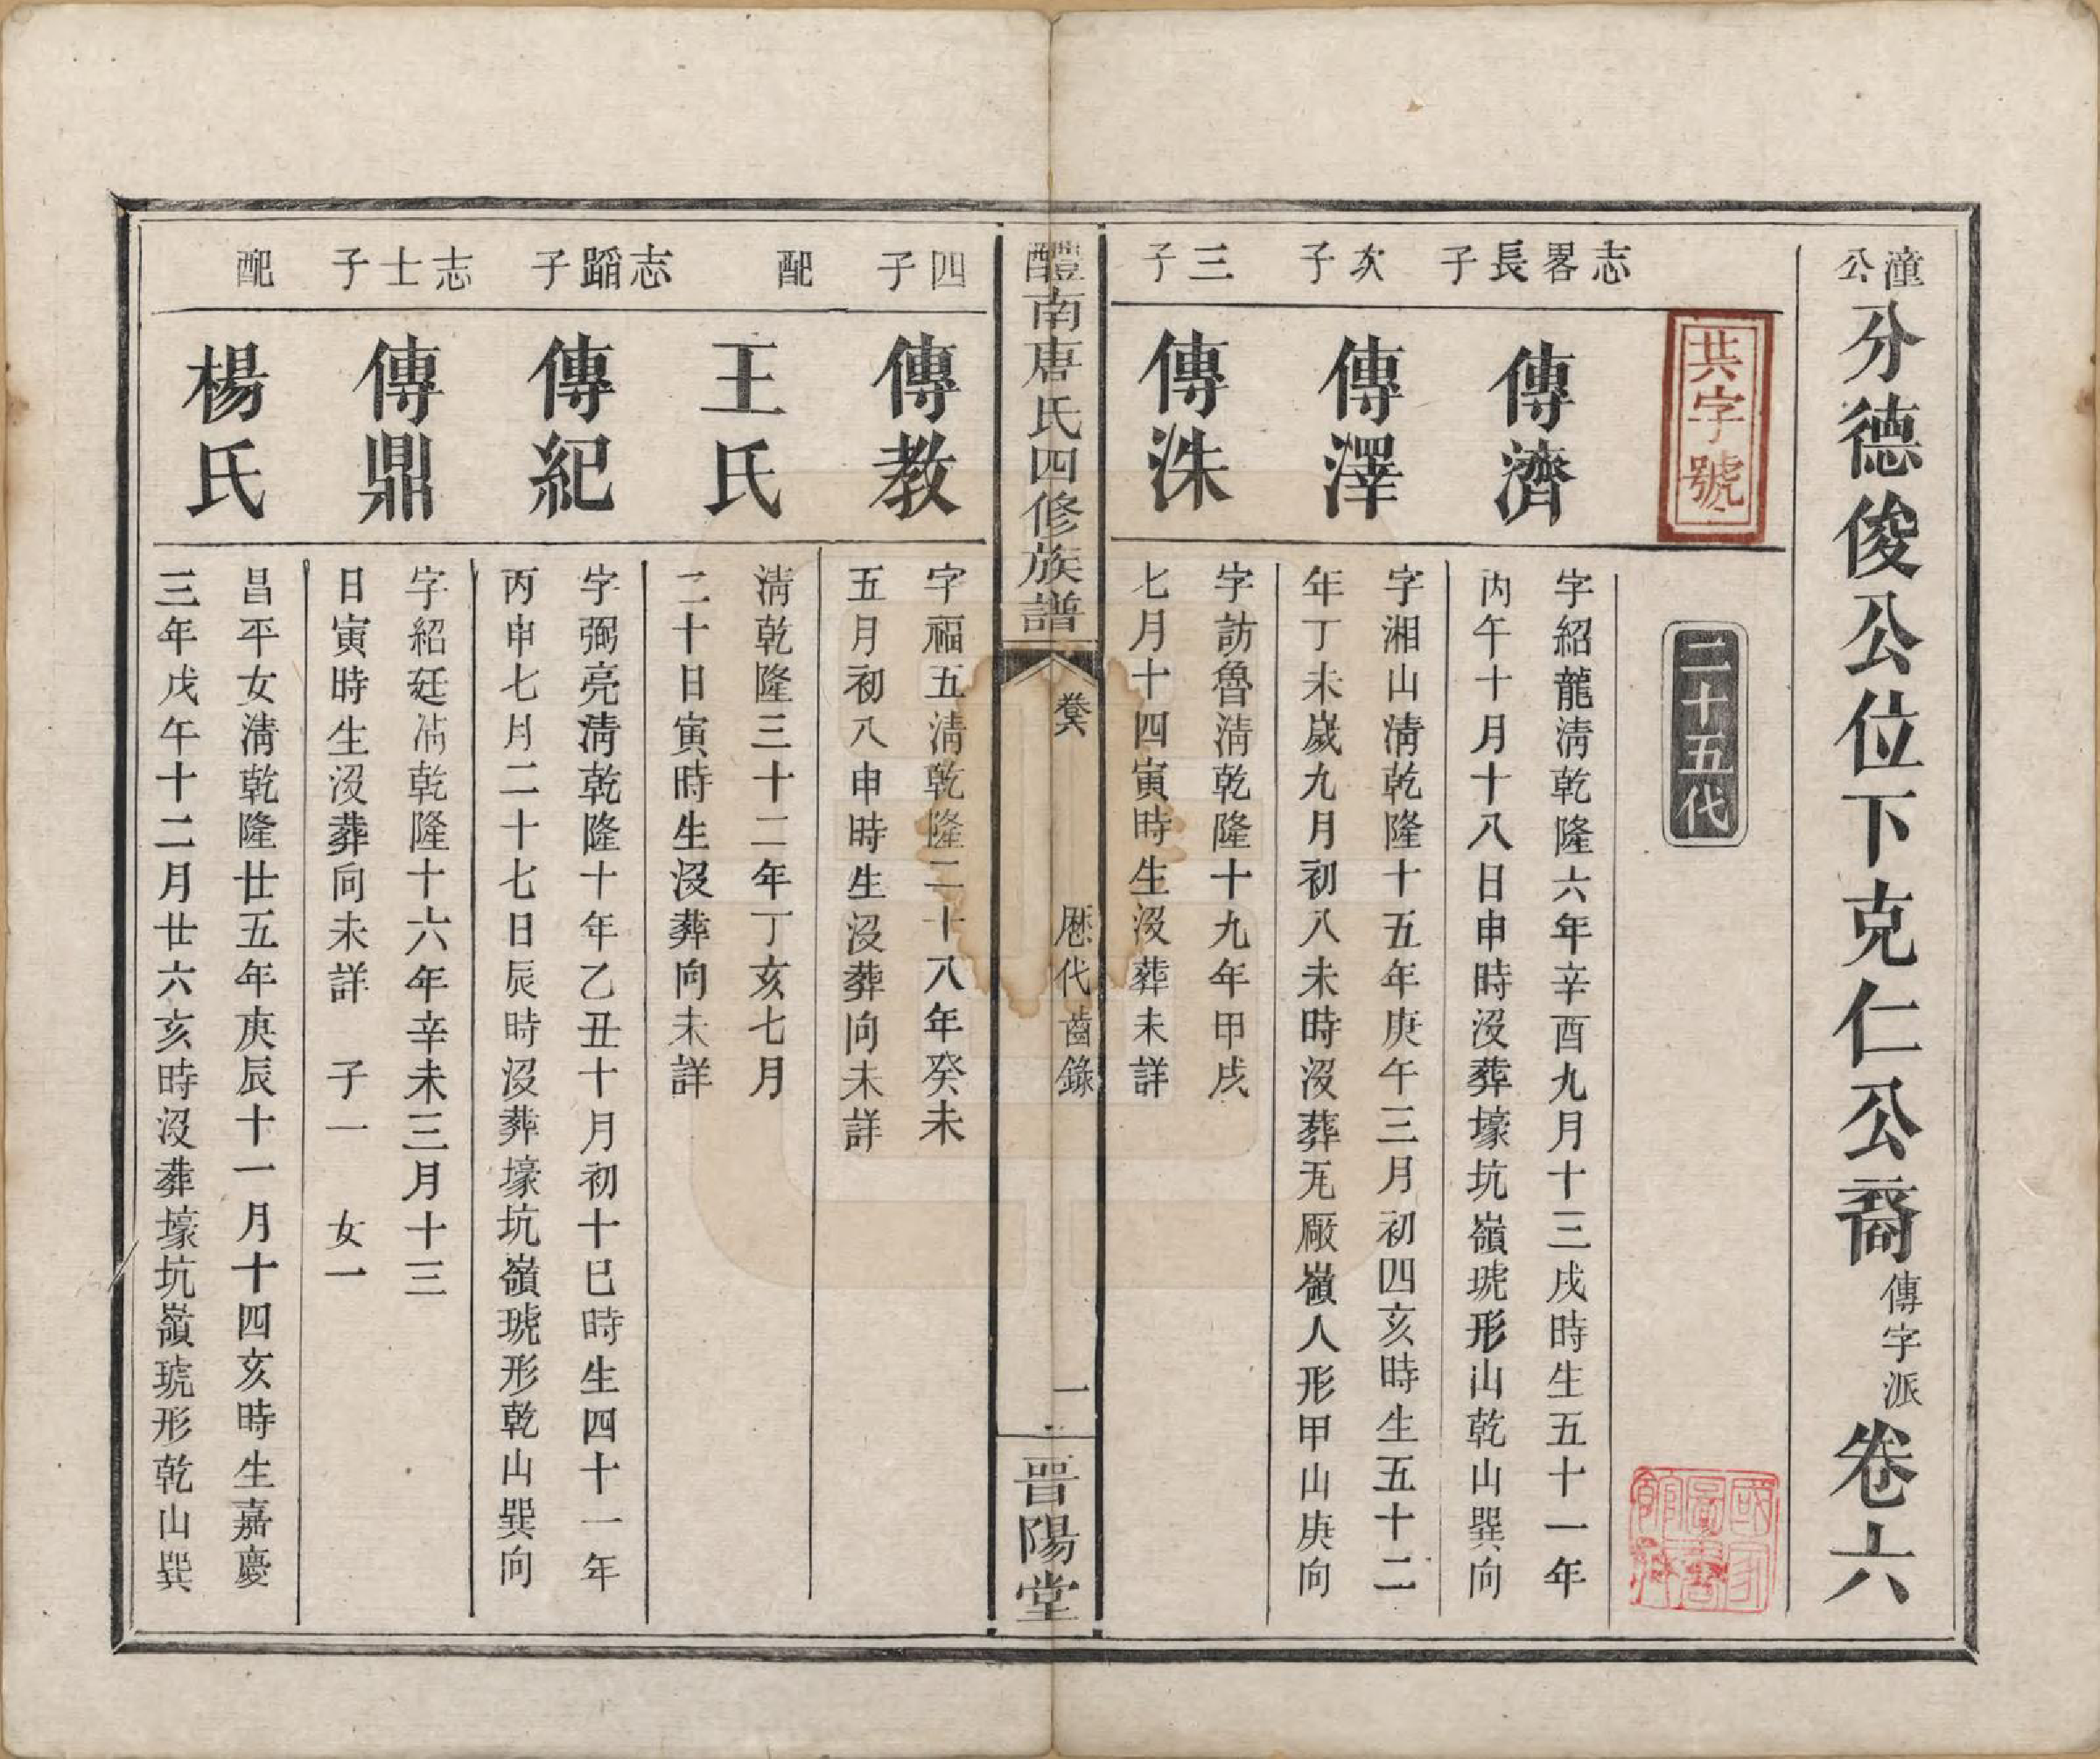 潼公分德俊公位下克仁公裔傳字派卷六
共字號
二十五代
國家圖書館藏
志畧長子
傳濟
字紹龍淸乾隆六年辛酉九月十三戌時生五十一年
丙午十月十八日申時沒葬壕坑嶺琥形山乾山巽向
次子
傳澤
字湘山淸乾隆十五年庚午三月初四亥時生五十二
年丁未歲九月初八未時沒葬旡厰嶺人形甲山庚向
三子
傳洙
字訪魯淸乾隆十九年甲戌
七月十四寅時生沒葬未詳
醴南唐氏四修族譜
卷六
歷代齒錄
一
晋陽堂
四子
傳教
字福五淸乾隆二十八年癸未
五月初八申時生沒葬向未詳
配
王氏
淸乾隆三十二年丁亥七月
二十日寅時生沒葬向未詳
志蹈子
傳紀
字弼亮淸乾隆十年乙丑十月初十巳時生四十一年
丙申七月二十七日辰時沒葬壕坑嶺琥形乾山巽向
志士子
傳鼎
字紹廷淸乾隆十六年辛未三月十三
日寅時生沒葬向未詳 子一 女一
配
楊氏
昌平女淸乾隆廿五年庚辰十一月十四亥時生嘉慶
三年戊午十二月廿六亥時沒葬壕坑嶺琥形乾山巽